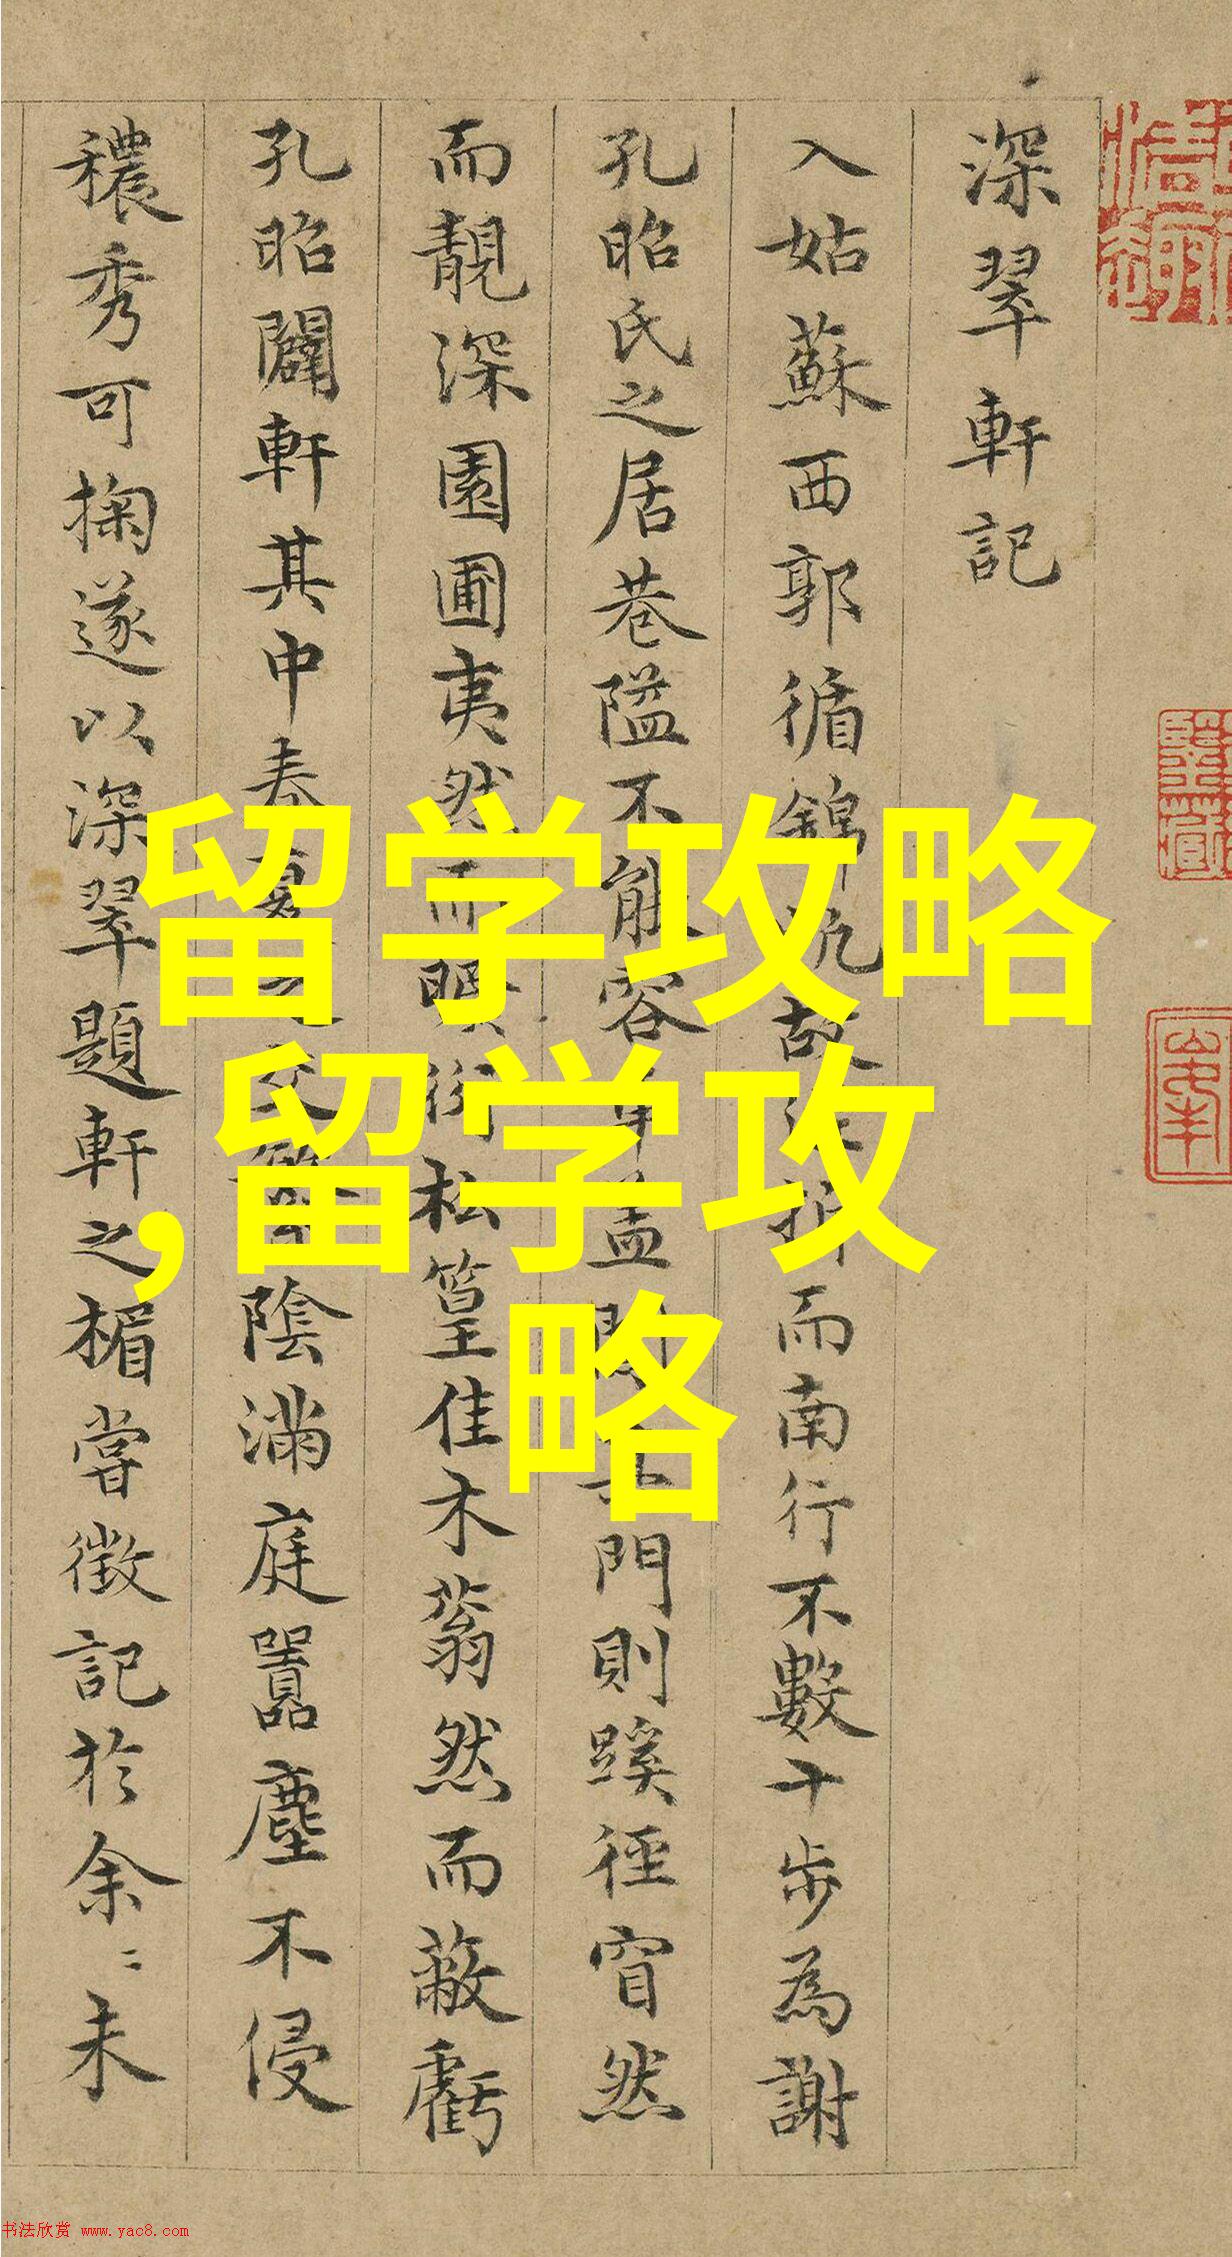 深翠軒記
入姑蘇西郭循錦帆故而南行不數十步為謝
孔昭氏之居巷隘不能容車蓋門則蹊徑窅然
而靚深園圃夷然而松篁佳木蓊然而蔽虧
孔昭闢軒其中春夏之交繁陰滿庭囂塵不侵
穠秀可掬遂以深翠題軒之楣嘗徵記於余〻未
留学攻略
,留学攻
略
书法欣赏 www.yac8.com